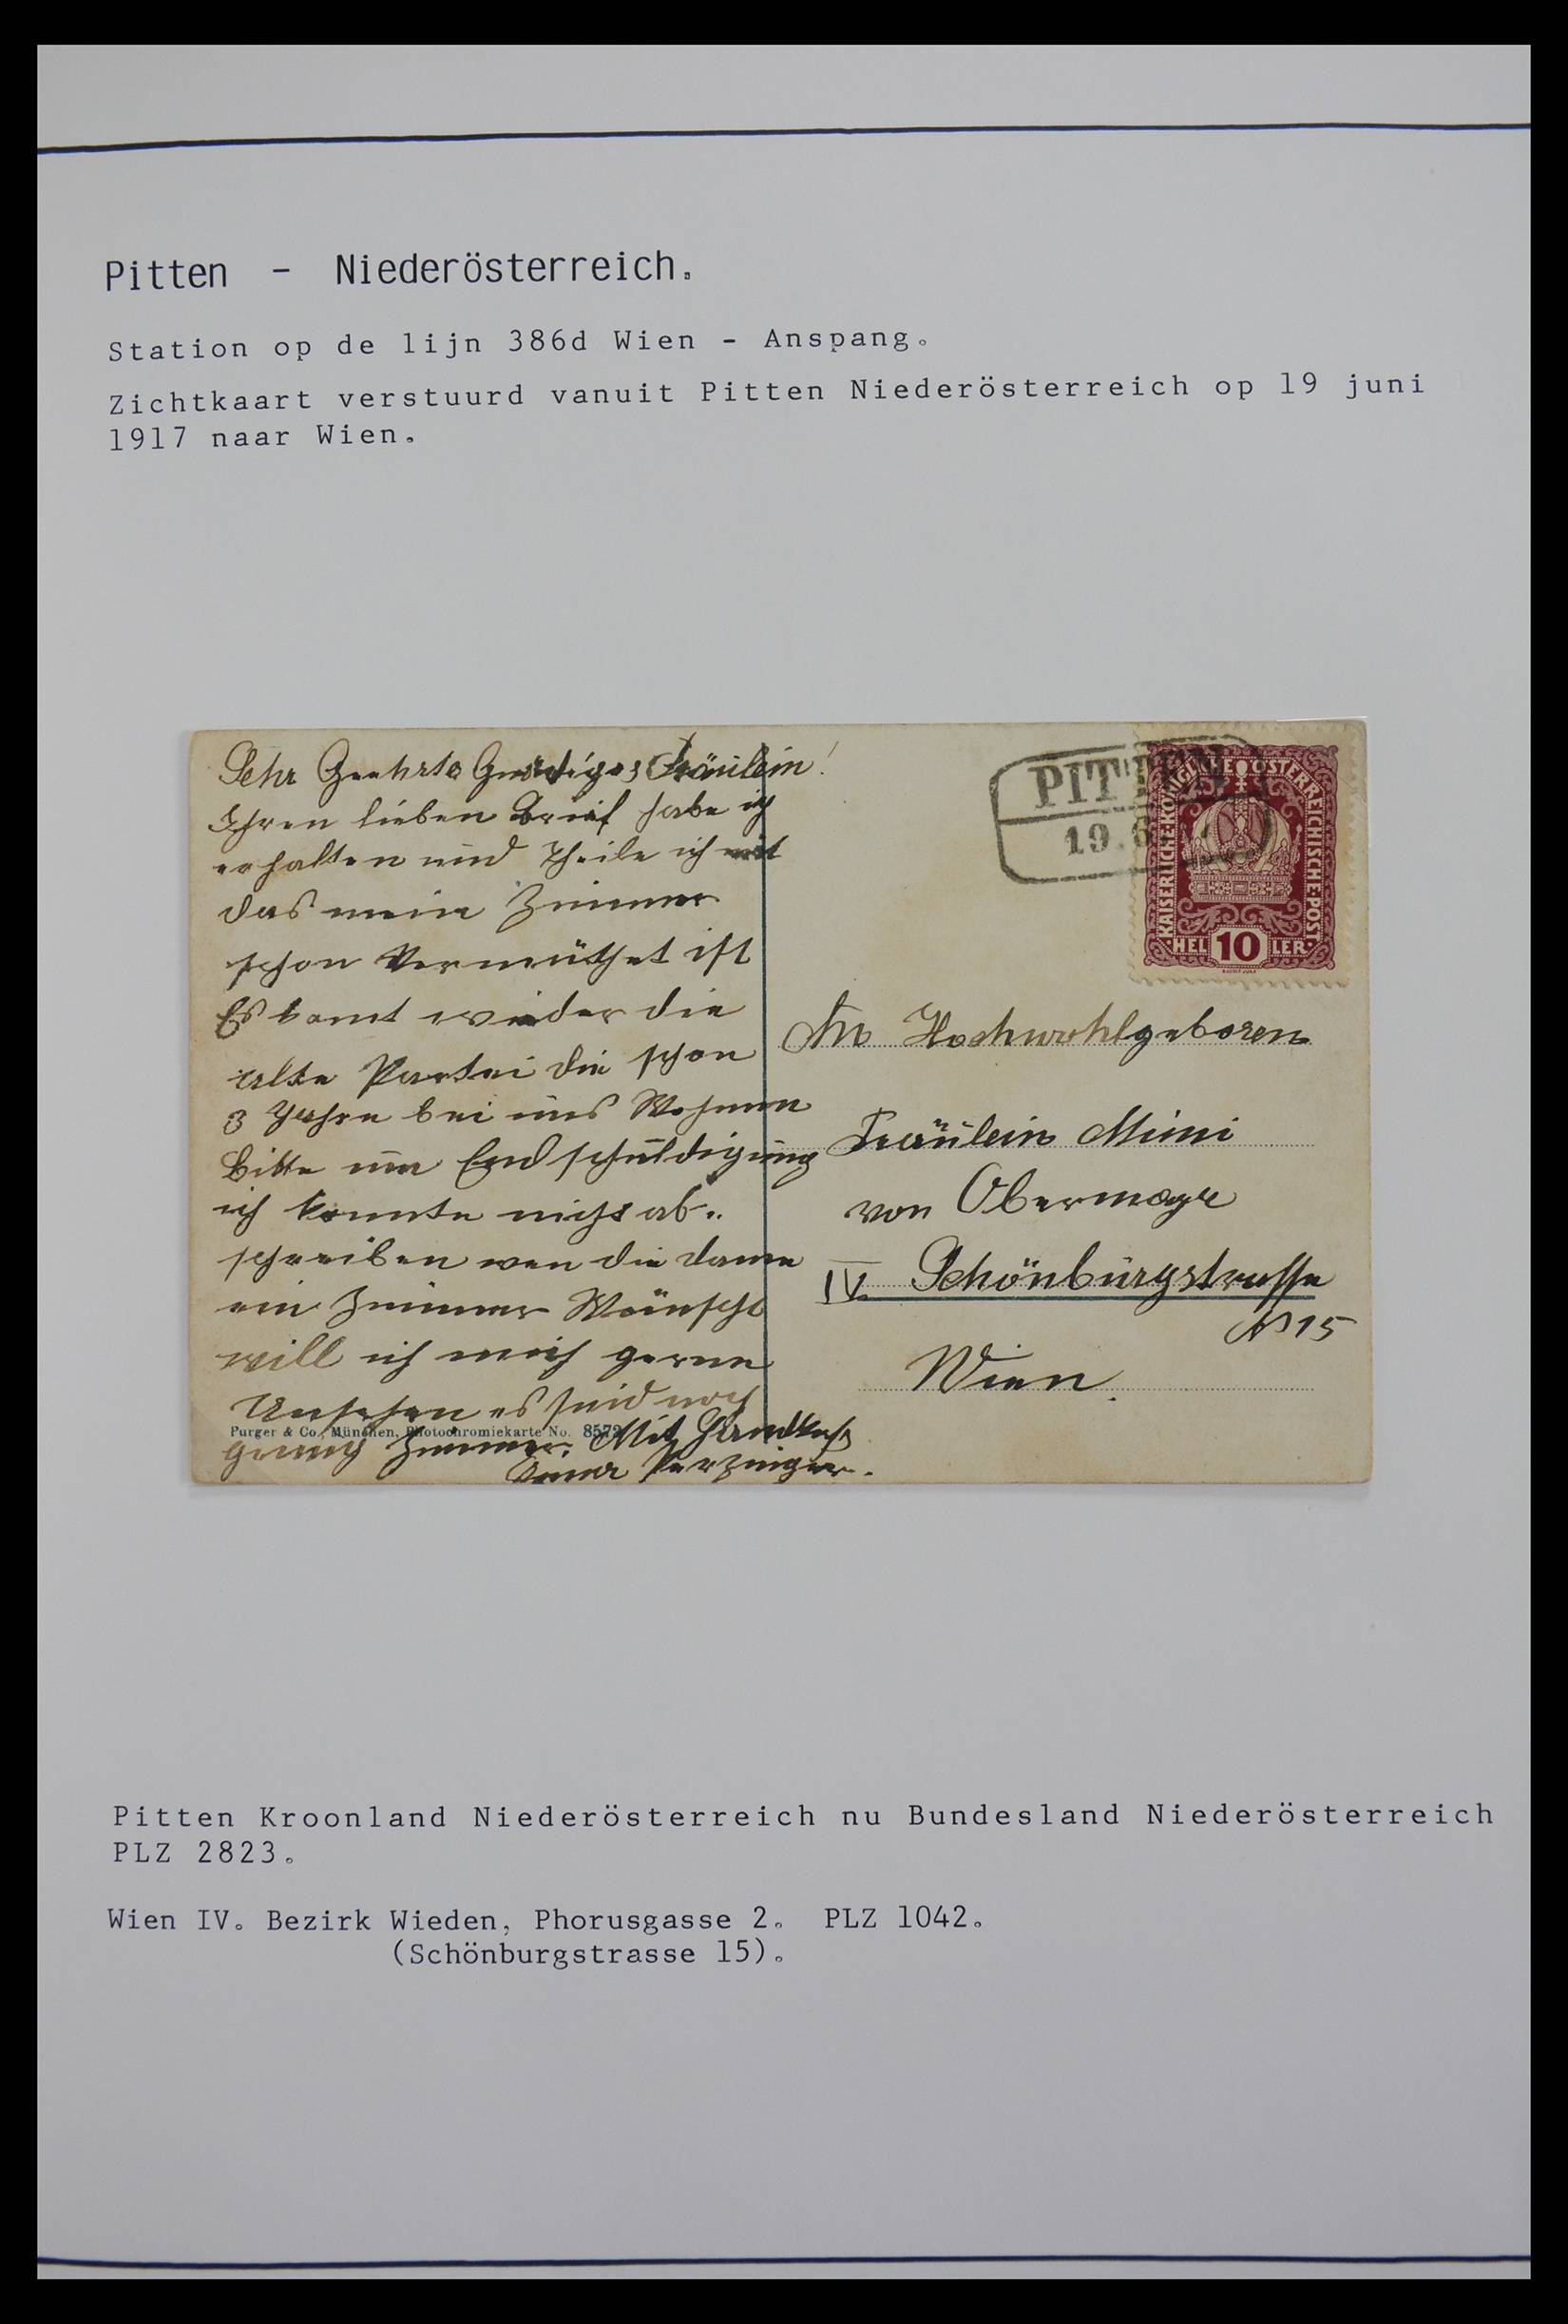 Pitten - Niederösterreich.
Station op de lijn 386d Wien - Anspang.
Zichtkaart verstuurd vanuit Pitten Niederösterreich op 19 juni
1917 naar Wien.
Sehr Geehrte Gnädiges Fräulein!
Ihren lieben Brief habe ich
erhalten und Theile ich mit
das meine Zimmer
schon Vermüthet ist
Es komt wieder die
alte Partei die schon
3 Jahre bei uns Wohnen
Bitte um Endschuldigung
ich konnte nicht ab-
schreiben wen die dame
ein Zimmer Wünscht
will ich mich gerne
Umsehen es sind noch
genug Zimmer. Mit Handkuß
Perzinger.
Purger & Co., München, Photochromiekarte No. 8572
PITTEN
19.6
KAISERLICHE KÖNIGLICHE ÖSTERREICHISCHE POST
HEL 10 LER
An Hochwohlgeboren
Fräulein Mimi
von Obermayr
IV. Schönburgstrasse
No 15
Wien.
Pitten Kroonland Niederösterreich nu Bundesland Niederösterreich
PLZ 2823.
Wien IV. Bezirk Wieden, Phorusgasse 2. PLZ 1042.
(Schönburgstrasse 15).